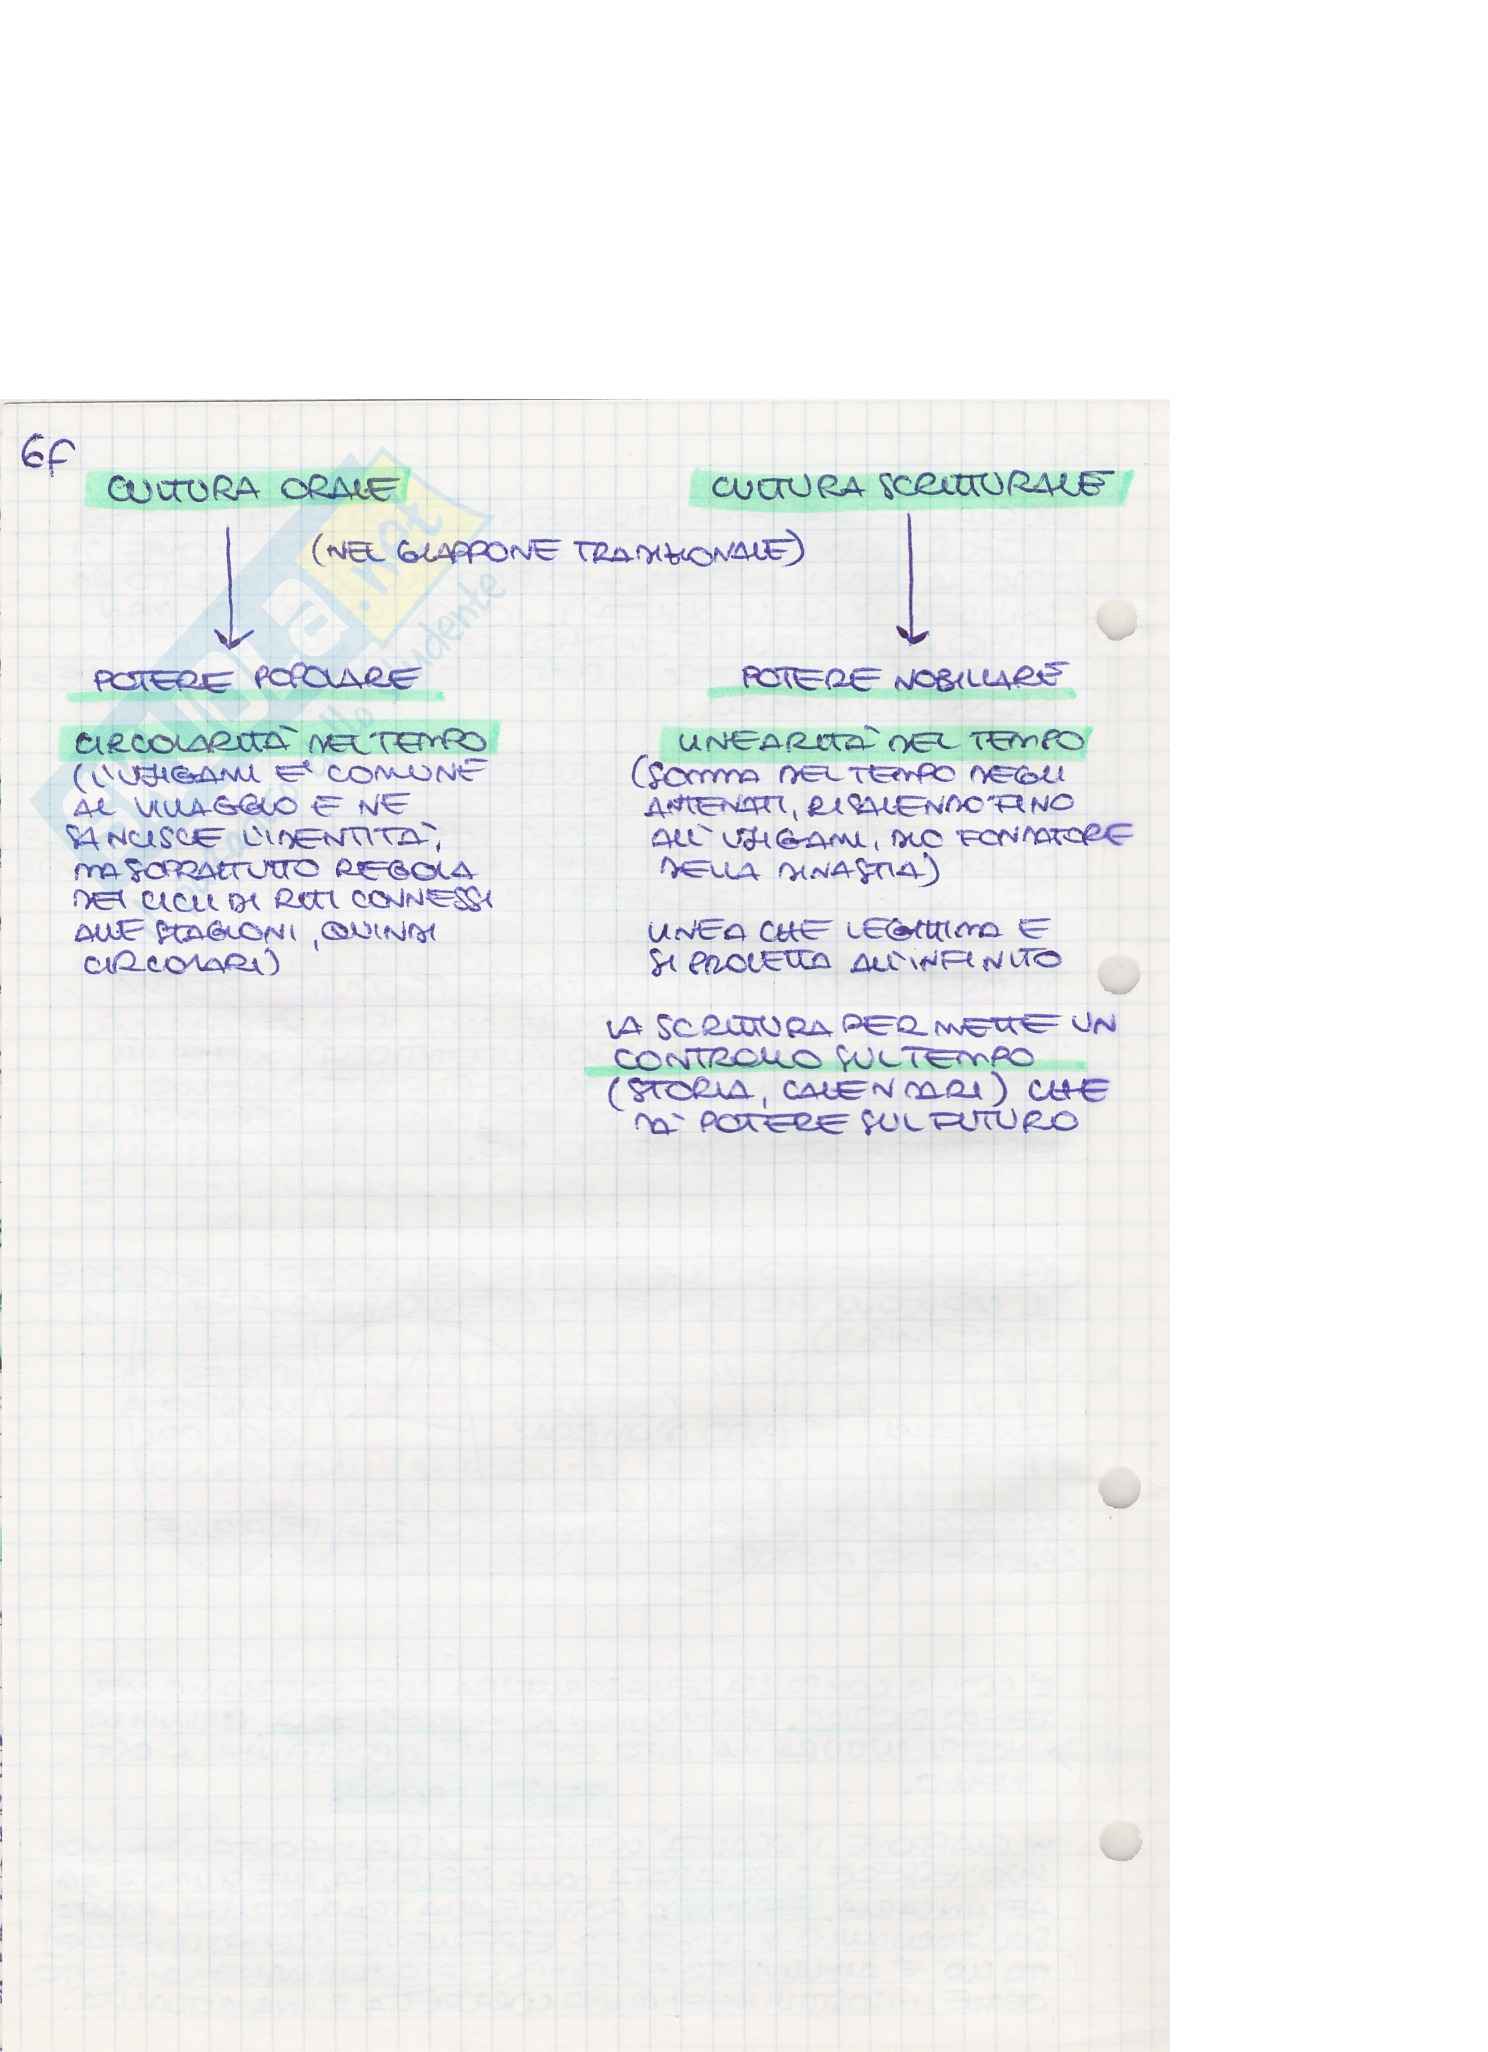 6f
CULTURA ORALE
CULTURA SCRITTURALE
(NEL GIAPPONE TRADIZIONALE)
POTERE POPOLARE
CIRCOLARITÀ DEL TEMPO
(L'UJIGAMI E' COMUNE
AL VILLAGGIO E NE
SANCISCE L'IDENTITÀ,
MA SOPRATTUTTO REGOLA
DEI CICLI DI RITI CONNESSI
ALLE STAGIONI, QUINDI
CIRCOLARI)
POTERE NOBILIARE
LINEARITÀ DEL TEMPO
(SOMMA DEL TEMPO DEGLI
ANTENATI, RISALENDO FINO
ALL'UJIGAMI, DIO FONDATORE
DELLA DINASTIA)
LINEA CHE LEGITTIMA E
SI PROIETTA ALL'INFINITO
LA SCRITTURA PERMETTE UN
CONTROLLO SUL TEMPO
(STORIA, CALENDARI) CHE
DÀ POTERE SUL FUTURO